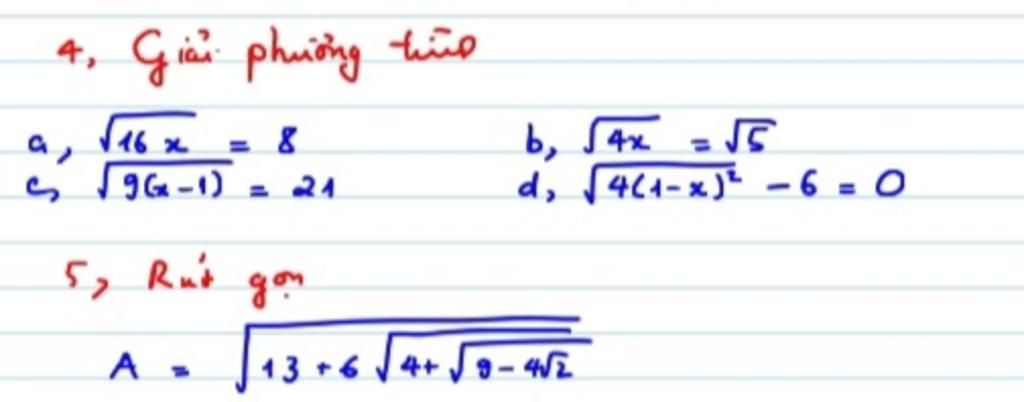 4, Giải phương trình
a, √(16x) = 8    b, √(4x) = √5
c, √(9(x-1)) = 21    d, √(4(1-x)²) - 6 = 0
5, Rút gọn
A = √(13 + 6√(4 + √(9 - 4√2)))